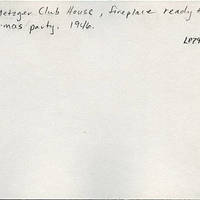 Metzger Club House, fireplace ready
mas party. 1946.